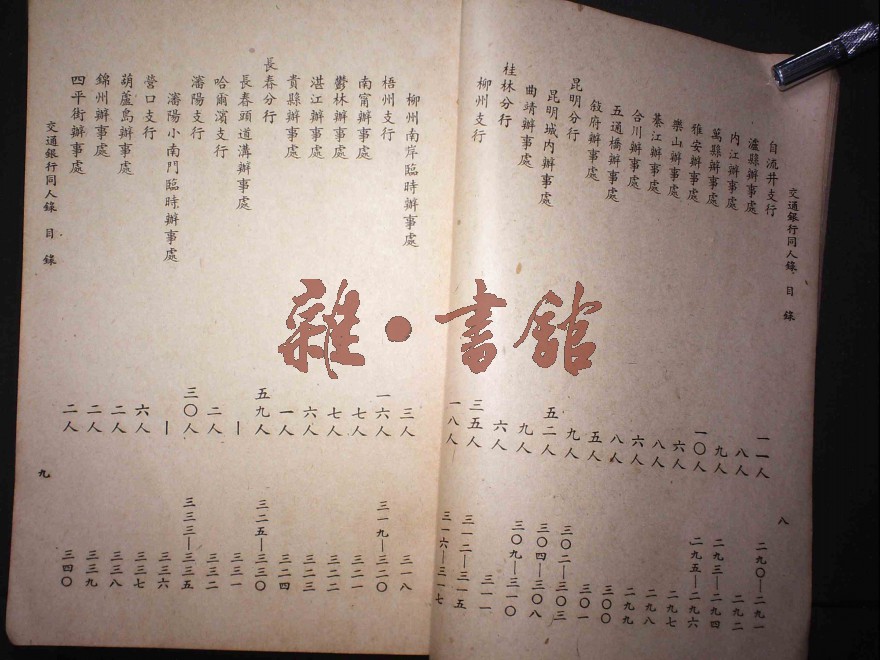 交通銀行同人錄 目錄 八
自流井支行 一一人 二九〇—二九一
瀘縣辦事處 八人 二九二
內江辦事處 九人 二九三—二九四
萬縣辦事處 一〇人 二九五—二九六
雅安辦事處 六人 二九七
樂山辦事處 八人 二九八
綦江辦事處 六人 二九九
合川辦事處 八人 三〇〇
五通橋辦事處 五人 三〇一
敘府辦事處 九人 三〇二—三〇三
昆明分行 五二人 三〇四—三〇八
昆明城內辦事處 九人 三〇九—三一〇
曲靖辦事處 六人 三一一
桂林分行 三五人 三一二—三一五
柳州支行 一八人 三一六—三一七
柳州南岸臨時辦事處 三人 三一八
梧州支行 一六人 三一九—三二〇
南甯辦事處 七人 三二一
鬱林辦事處 七人 三二二
湛江辦事處 六人 三二三
貴縣辦事處 一人 三二四
長春分行 五九人 三二五—三三〇
長春頭道溝辦事處 — 三三一
哈爾濱支行 二人 三三二
瀋陽支行 三〇人 三三三—三三五
瀋陽小南門臨時辦事處 — 三三六
營口支行 六人 三三七
葫蘆島辦事處 二人 三三八
錦州辦事處 二人 三三九
四平街辦事處 二人 三四〇
交通銀行同人錄 目錄 九
雜·書館